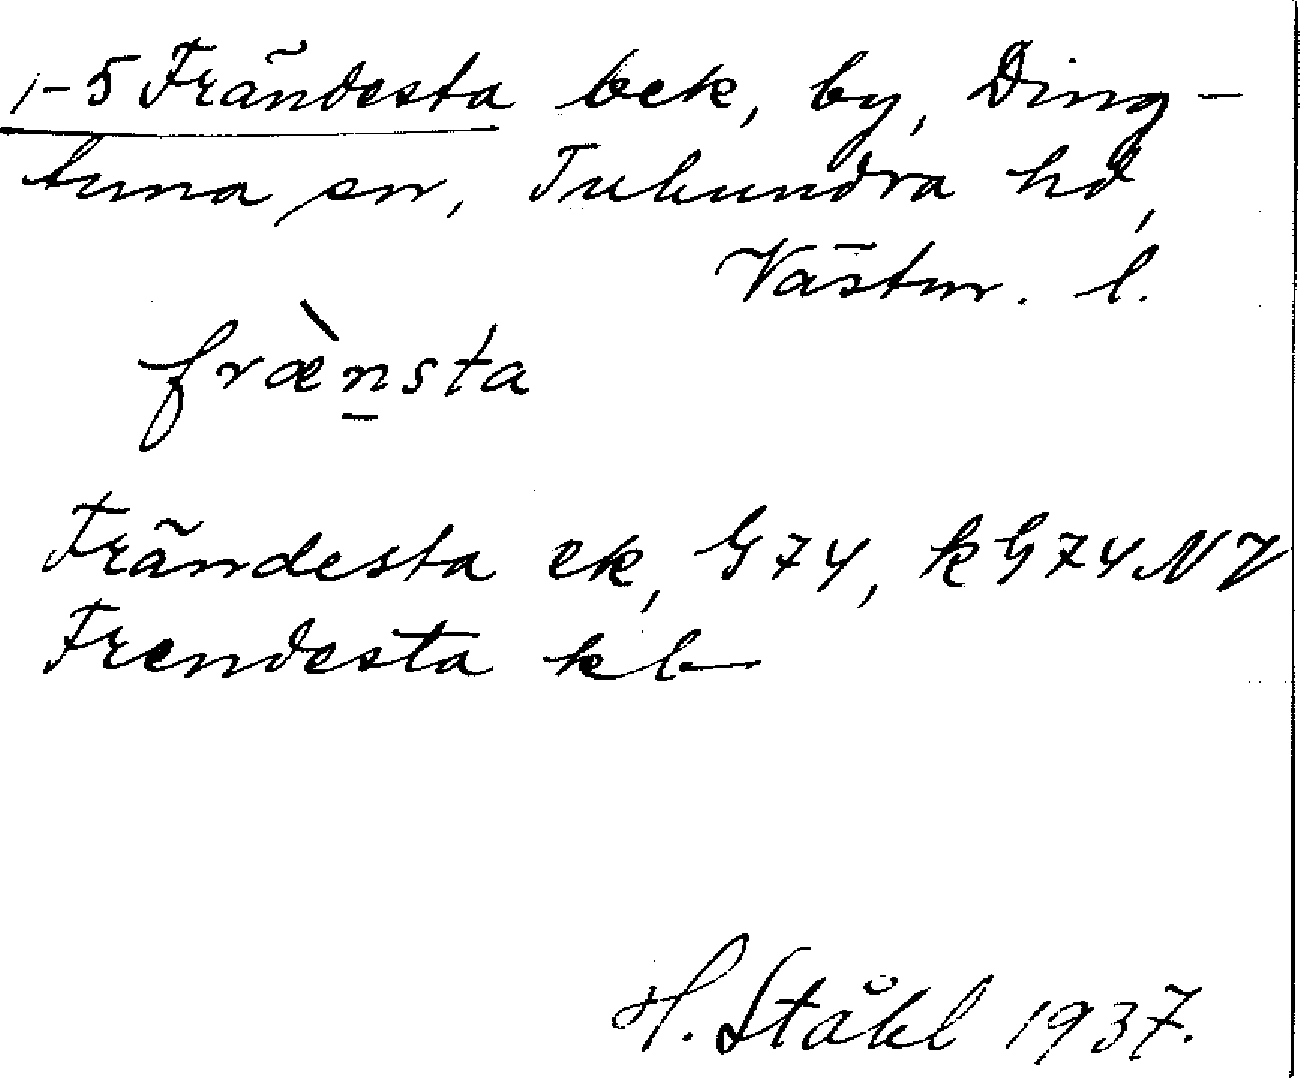 1-5 Frändesta bek, by, Ding-
tuna sn, Tuhundra hd,
Västm. l.
fræ̀n̲sta
Frändesta ek, G74, kG74NV
Frendesta kb
H. Ståhl 1937.